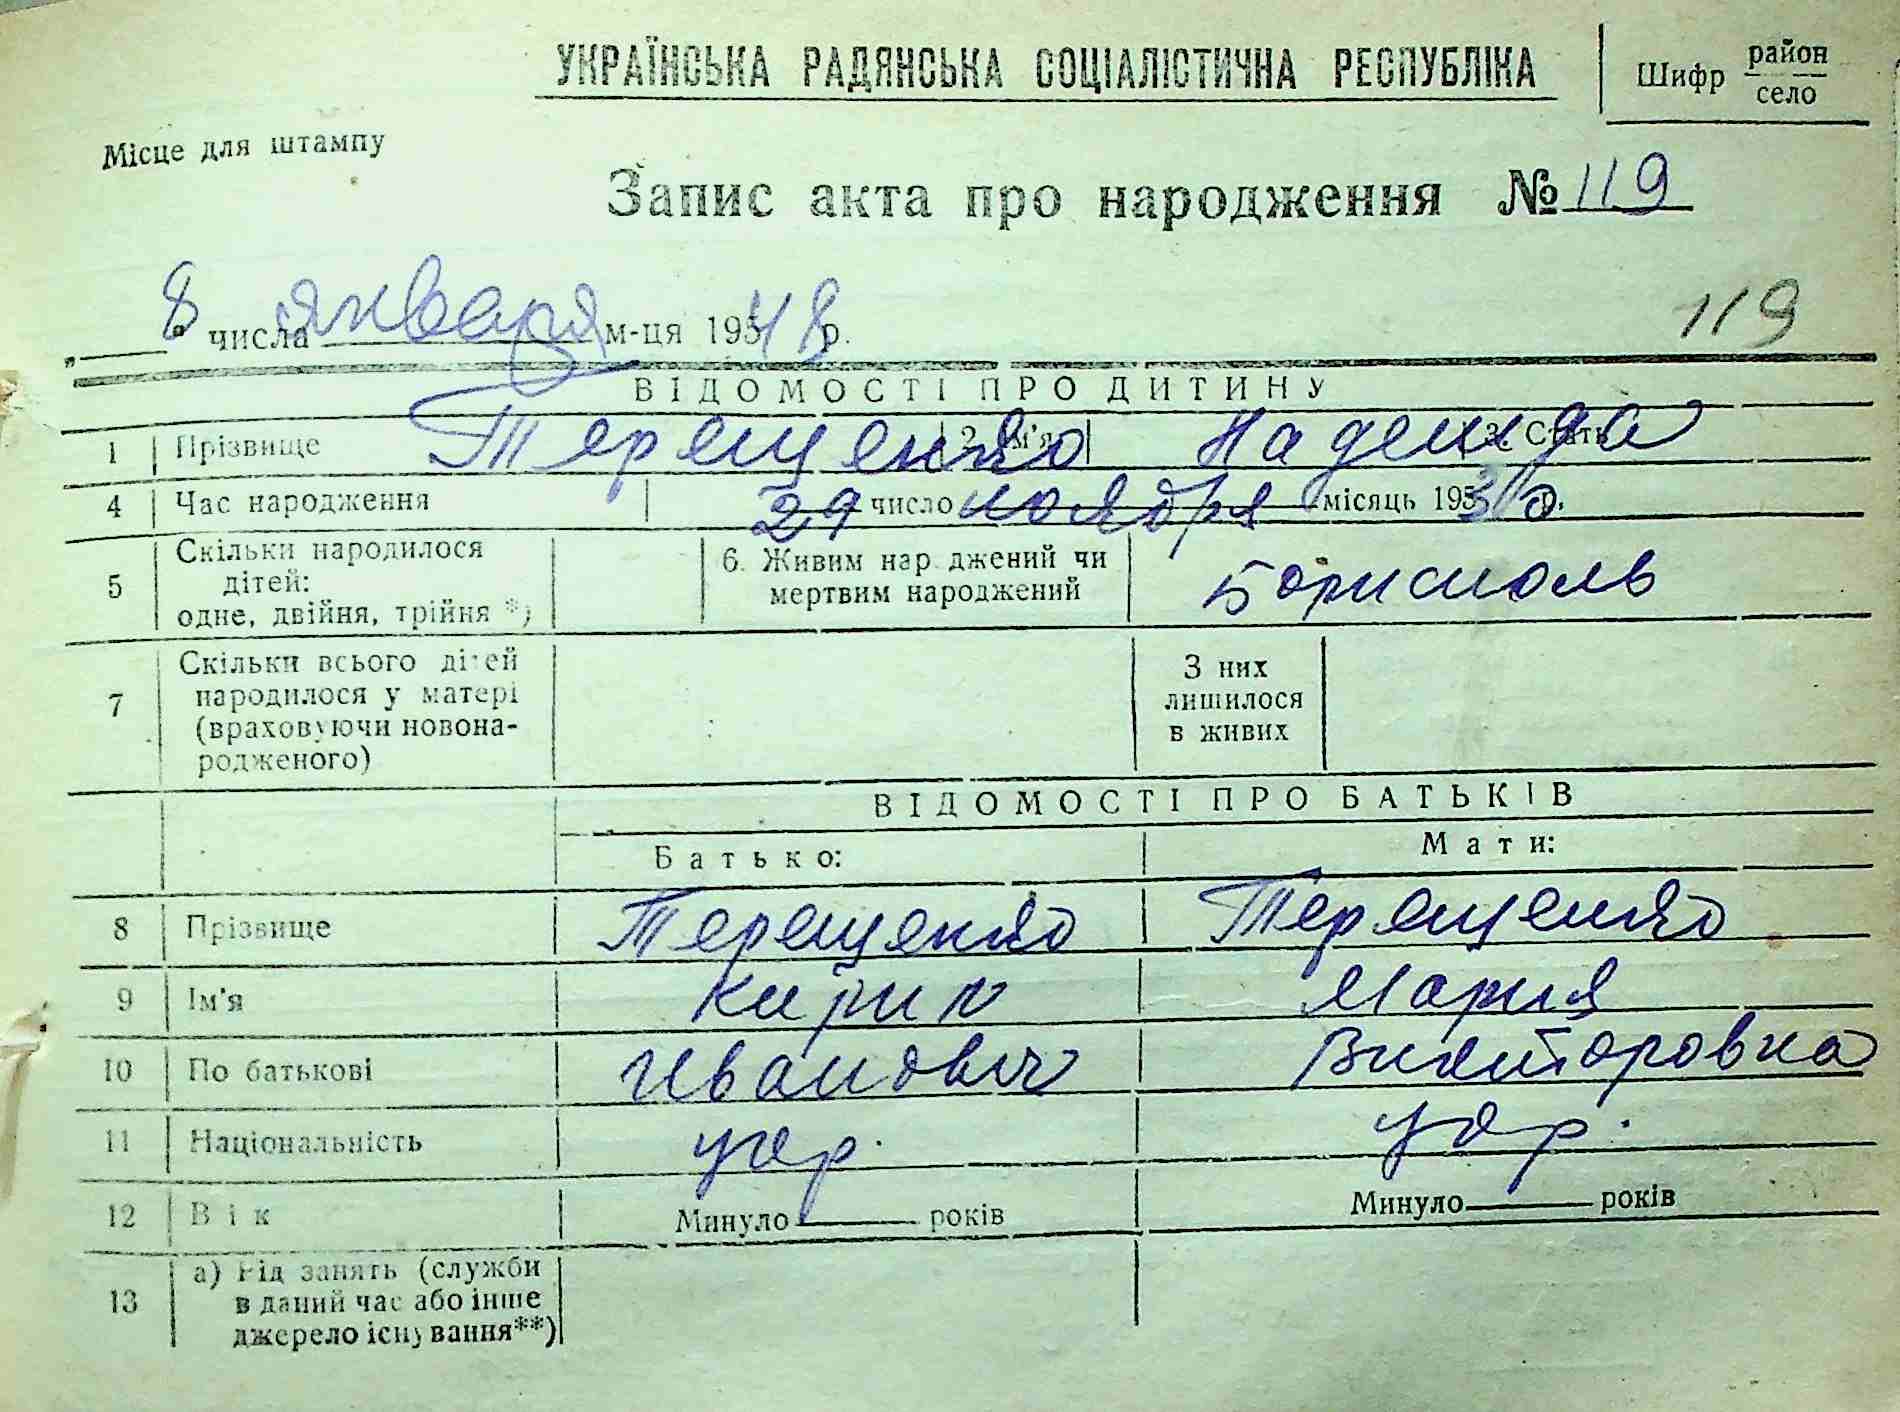 УКРАЇНСЬКА РАДЯНСЬКА СОЦІАЛІСТИЧНА РЕСПУБЛІКА
Шифр район село
Місце для штампу
Запис акта про народження № 119
„ 8 числа января м-ця 195 48 р.
119
ВІДОМОСТІ ПРО ДИТИНУ
1 Прізвище Терещенко 2. Ім'я Надежда 3. Стать
4 Час народження 29 число ноября місяць 193
5 Скільки народилося дітей: одне, двійня, трійня *) 6. Живим народжений чи мертвим народжений Борисполь
7 Скільки всього дітей народилося у матері (враховуючи новонародженого) З них лишилося в живих
ВІДОМОСТІ ПРО БАТЬКІВ
Батько: Мати:
8 Прізвище Терещенко Терещенко
9 Ім'я Кирил Мария
10 По батькові Иванович Викторовка
11 Національність укр. укр.
12 Вік Минуло років Минуло років
13 а) Рід занять (служби в даний час або інше джерело існування**)